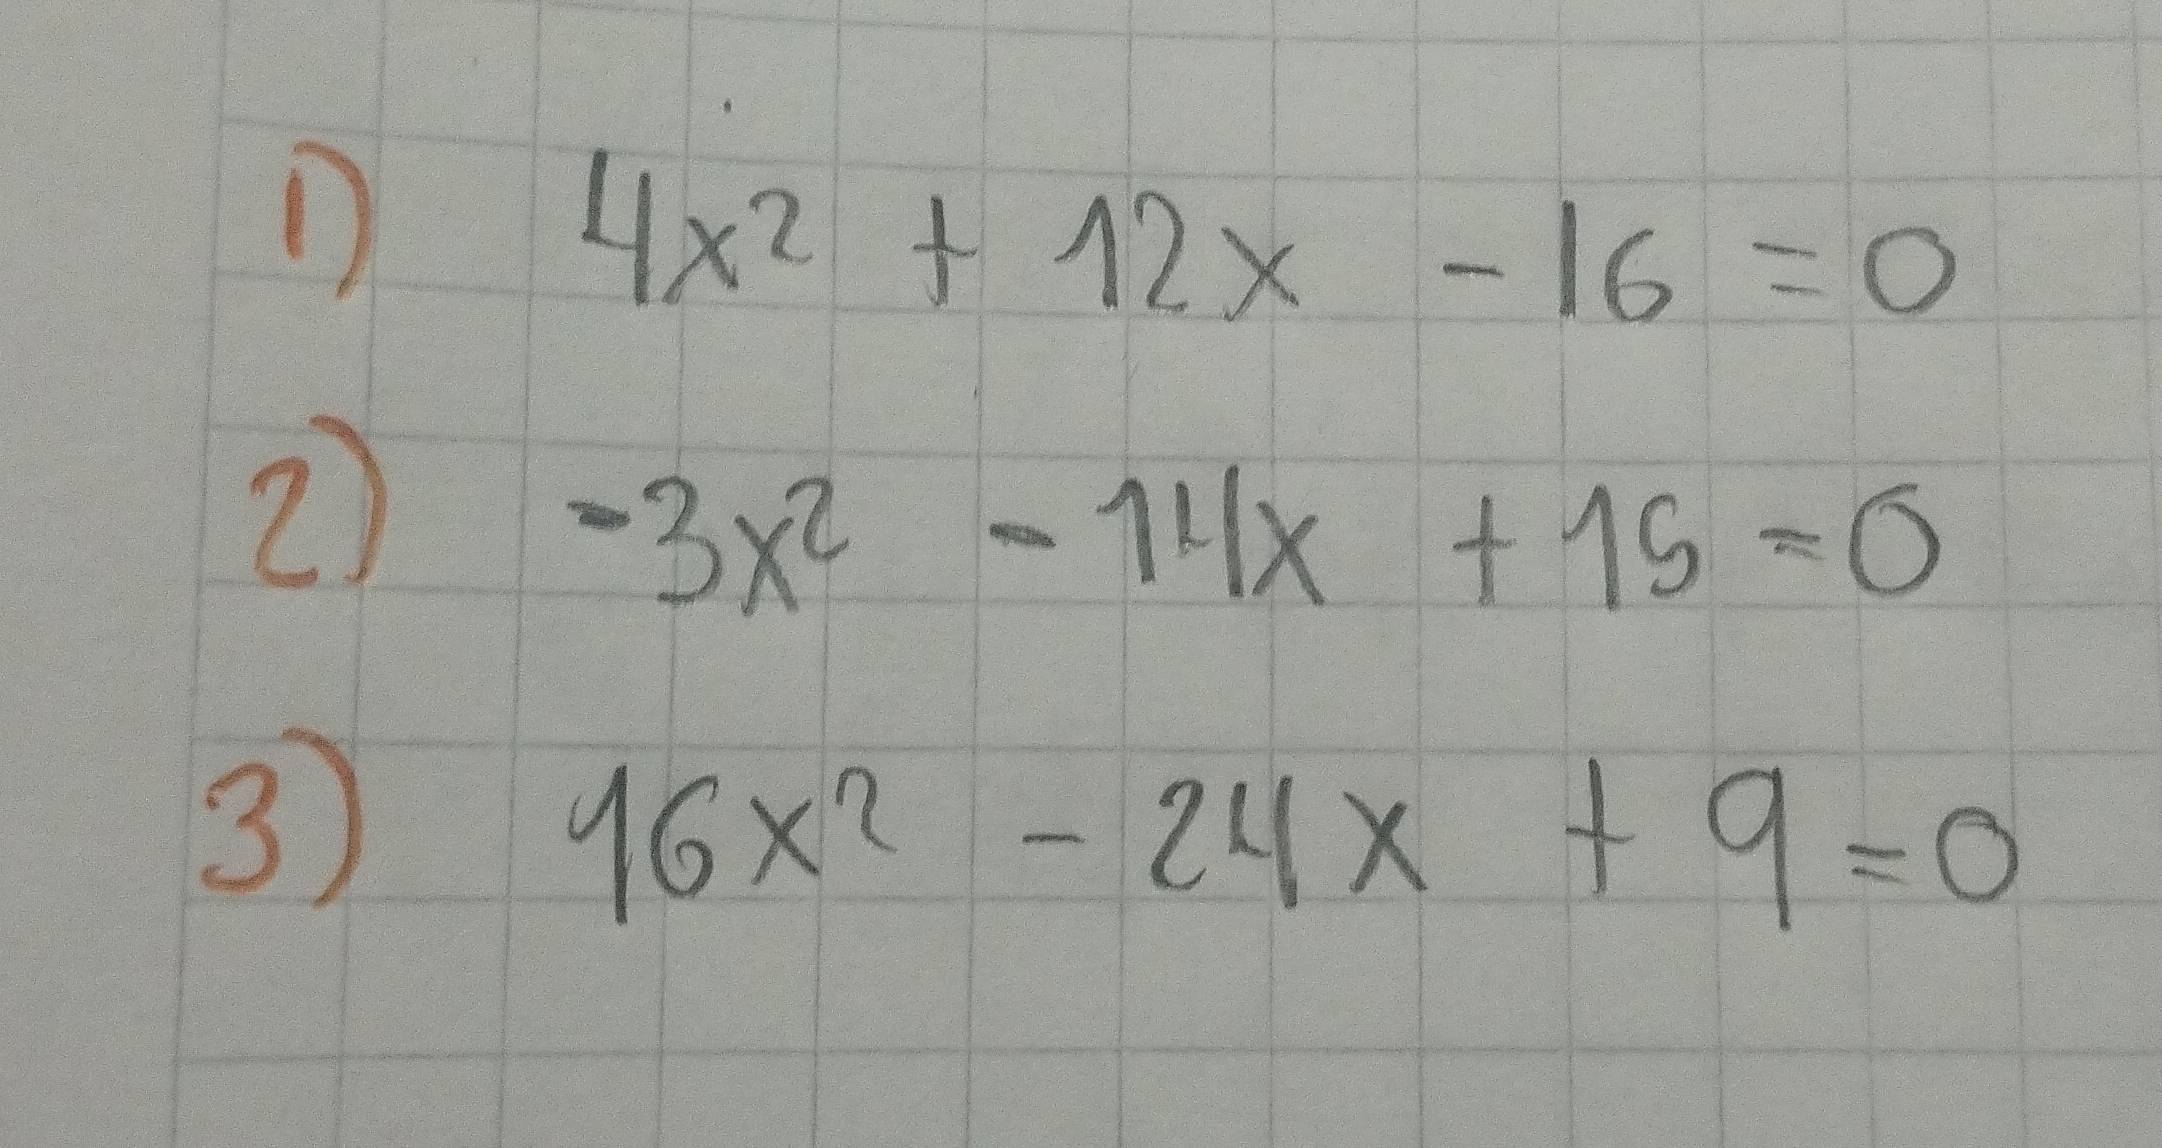 1) 4x² + 12x - 16 = 0
2) -3x² - 14x + 15 = 0
3) 16x² - 24x + 9 = 0